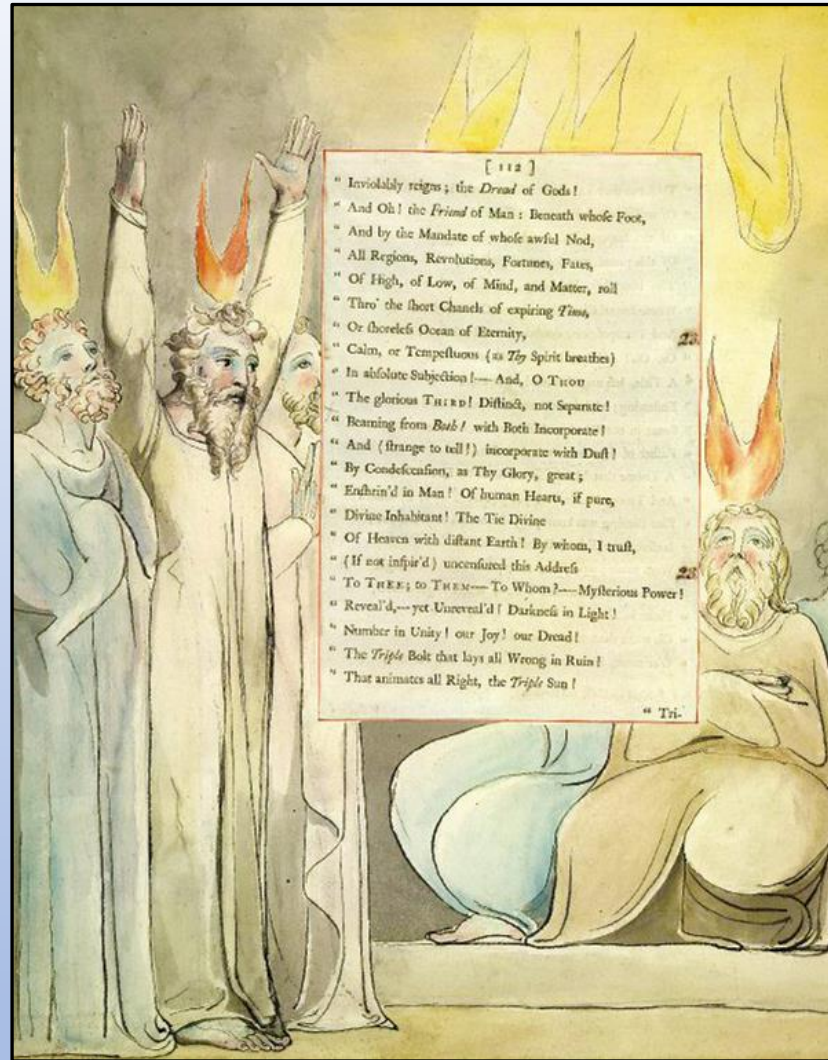 [ 112 ]
“ Inviolably reigns; the Dread of Gods!
“ And Oh! the Friend of Man: Beneath whose Foot,
“ And by the Mandate of whose awful Nod,
“ All Regions, Revolutions, Fortunes, Fates,
“ Of High, of Low, of Mind, and Matter, roll
“ Thro' the ſhort Chanels of expiring Time,
“ Or ſhoreleſs Ocean of Eternity,
“ Calm, or Tempeſtuous (as Thy Spirit breathes)
“ In abſolute Subjection!—And, O THOU
“ The glorious THIRD! Diſtinct, not Separate!
“ Beaming from Both! with Both Incorporate!
“ And (ſtrange to tell!) incorporate with Duſt!
“ By Condeſcenſion, as Thy Glory, great;
“ Enſhrin'd in Man! Of human Hearts, if pure,
“ Divine Inhabitant! The Tie Divine
“ Of Heaven with diſtant Earth! By whom, I truſt,
“ (If not inſpir'd) uncenſured this Addreſs
“ To THEE; to THEM—To Whom?—Myſterious Power!
“ Reveal'd,—yet Unreveal'd! Darkneſs in Light!
“ Number in Unity! our Joy! our Dread!
“ The Triple Bolt that lays all Wrong in Ruin!
“ That animates all Right, the Triple Sun!
“ Tri-